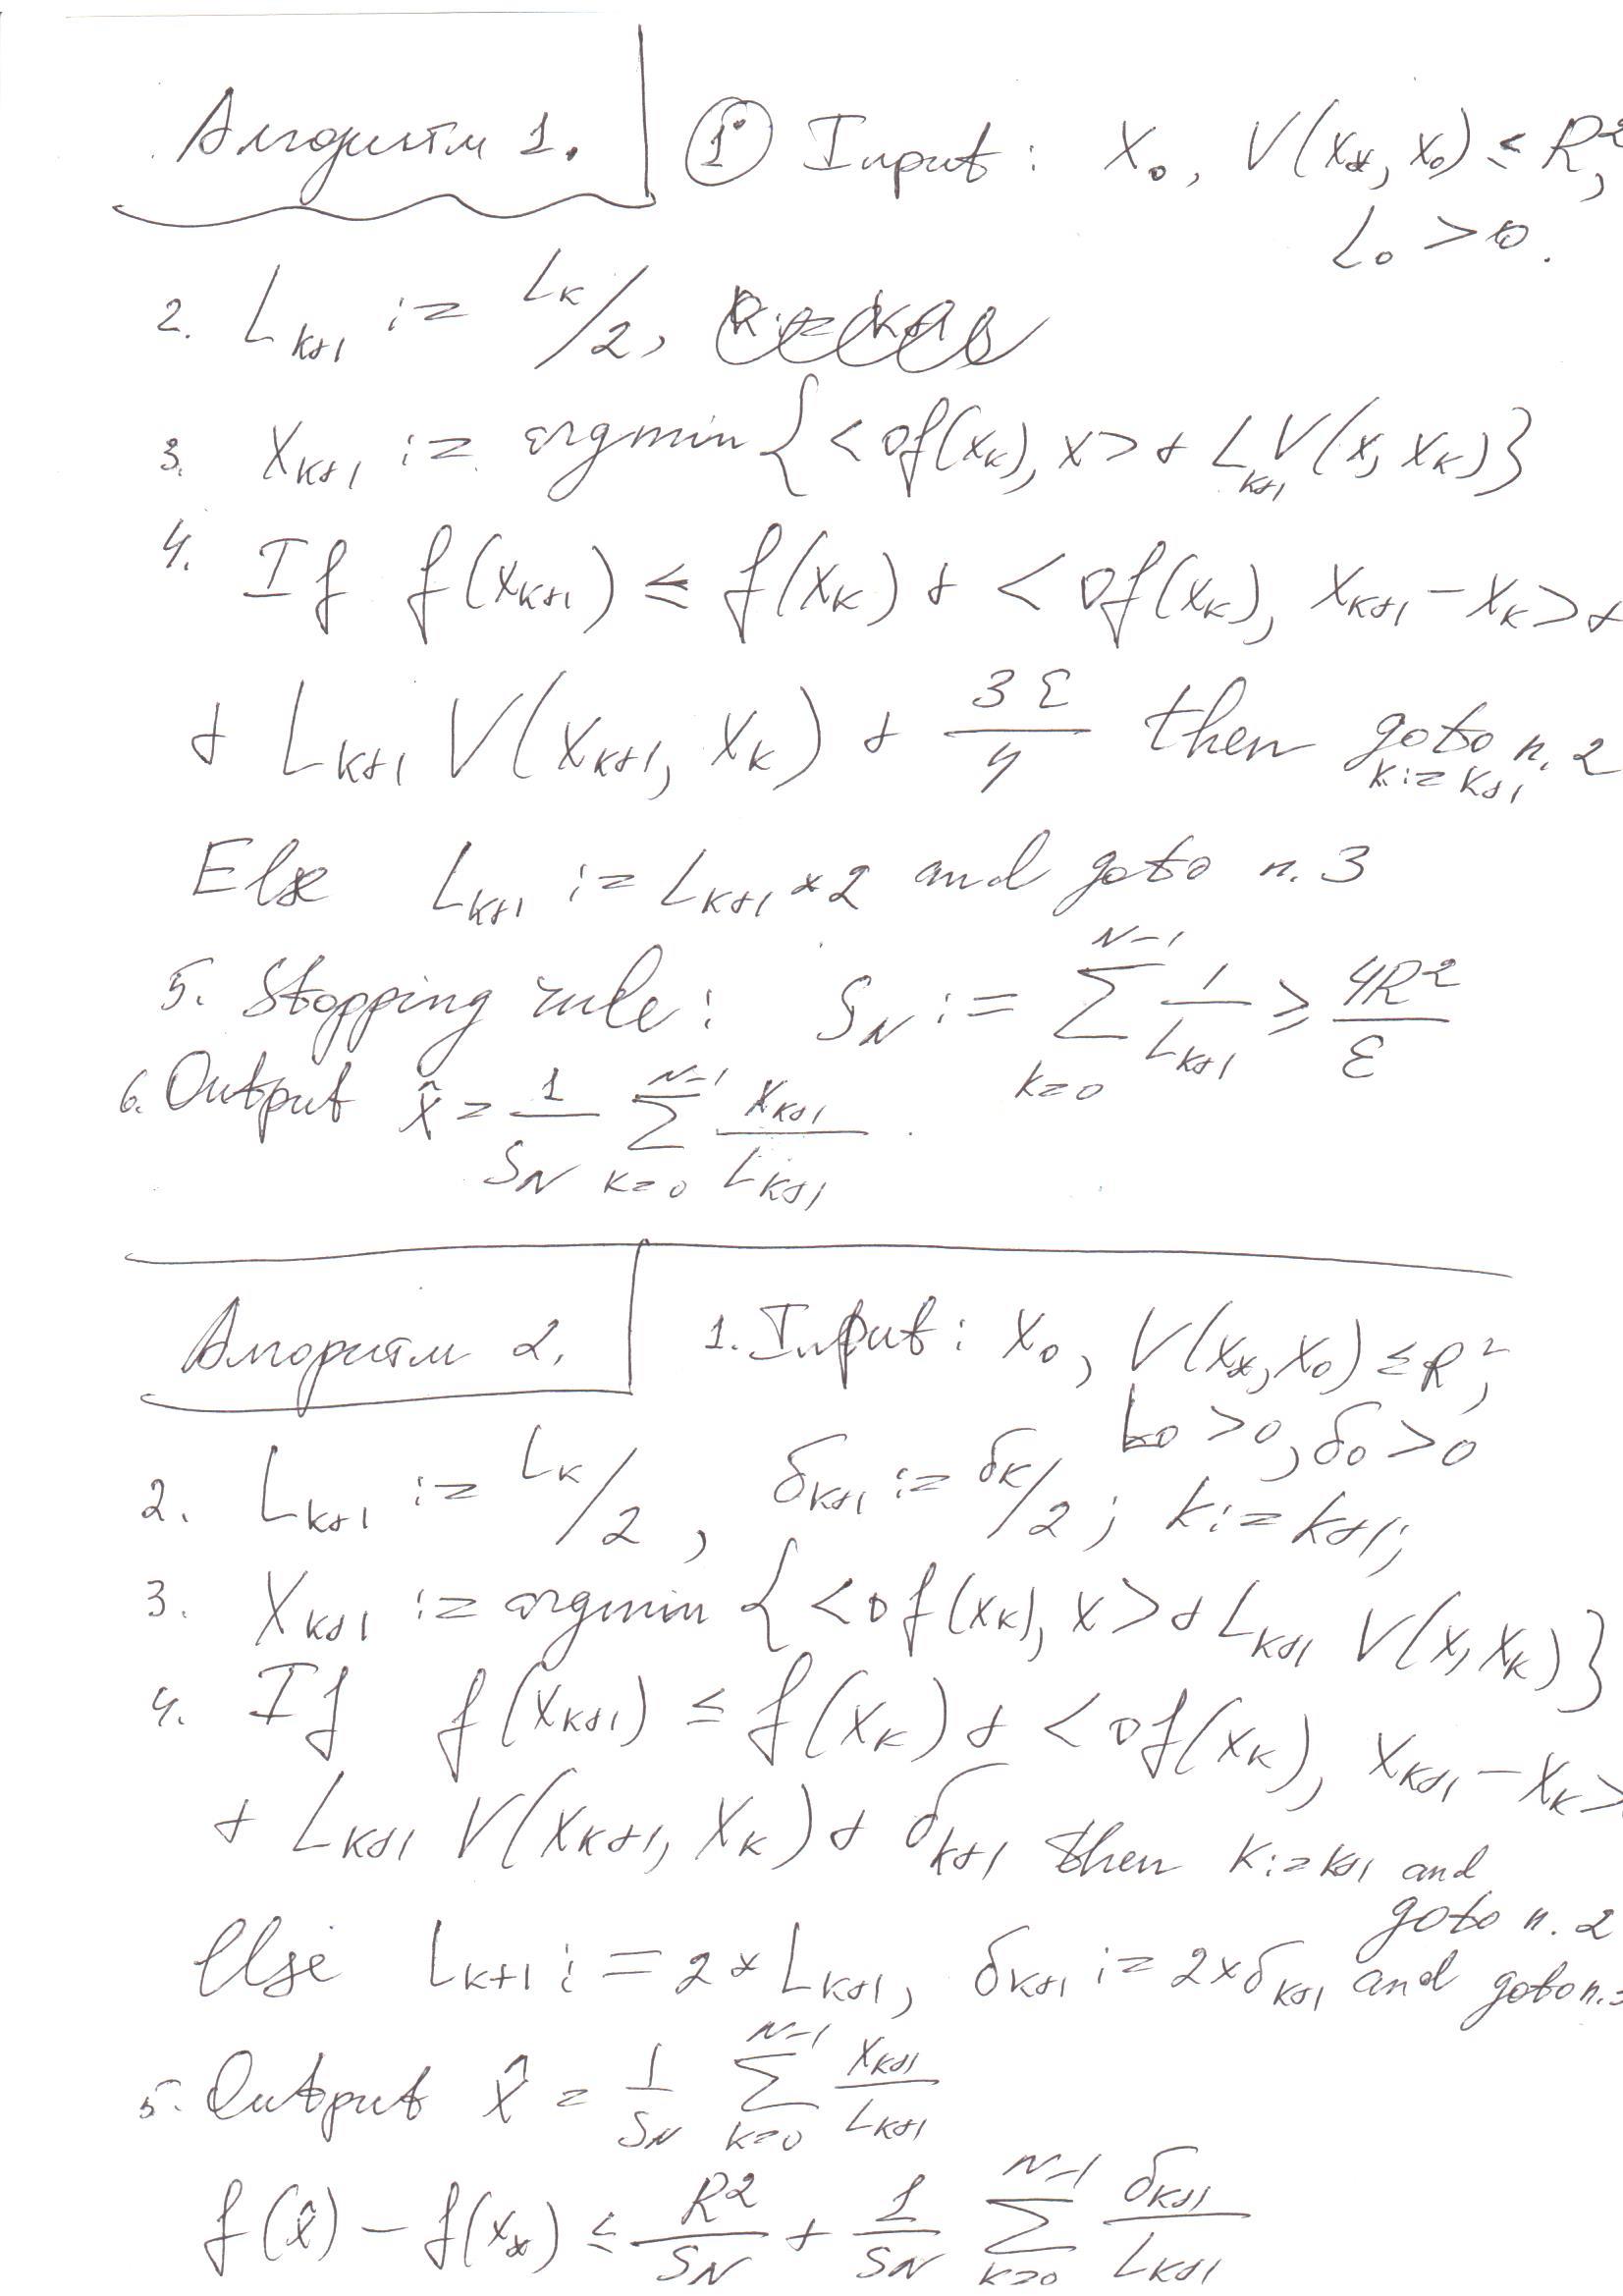 Алгоритм 1. 1° Input: x₀, V(x_*, x₀) ≤ R²,
L₀ > 0.
2. L_{k+1} := L_k/2,
3. x_{k+1} := argmin {<∇f(x_k), x> + L_{k+1} V(x, x_k)}
4. If f(x_{k+1}) ≤ f(x_k) + <∇f(x_k), x_{k+1} - x_k> +
+ L_{k+1} V(x_{k+1}, x_k) + 3ε/4 then goto n. 2
k := k+1
Else L_{k+1} := L_{k+1} * 2 and goto n. 3
5. Stopping rule: S_N := ∑_{k=0}^{N-1} 1/L_{k+1} ≥ 4R²/ε
6. Output x̂ = 1/S_N ∑_{k=0}^{N-1} x_{k+1}/L_{k+1}.
Алгоритм 2. 1. Input: x₀, V(x_*, x₀) ≤ R²,
L₀ > 0, δ₀ > 0
2. L_{k+1} := L_k/2, δ_{k+1} := δ_k/2; k := k+1;
3. x_{k+1} := argmin {<∇f(x_k), x> + L_{k+1} V(x, x_k)}
4. If f(x_{k+1}) ≤ f(x_k) + <∇f(x_k), x_{k+1} - x_k>
+ L_{k+1} V(x_{k+1}, x_k) + δ_{k+1} then k := k+1 and
goto n. 2
Else L_{k+1} := 2 * L_{k+1}, δ_{k+1} := 2 × δ_{k+1} and goto n. 3
5. Output x̂ = 1/S_N ∑_{k=0}^{N-1} x_{k+1}/L_{k+1}
f(x̂) - f(x_*) ≤ R²/S_N + 1/S_N ∑_{k=0}^{N-1} δ_{k+1}/L_{k+1}